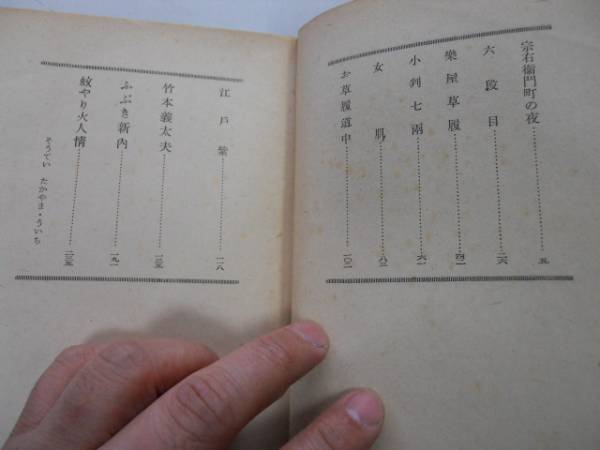 宗右衞門町の夜……五
六段目……二六
樂屋草履……四一
小判七兩……六一
女肌……八三
お草履道中……一〇一
江戸紫……一一八
竹本義太夫……一五〇
ふぶき新內……一九一
蚊やり火人情……二三五
そうてい たかやま・ういち